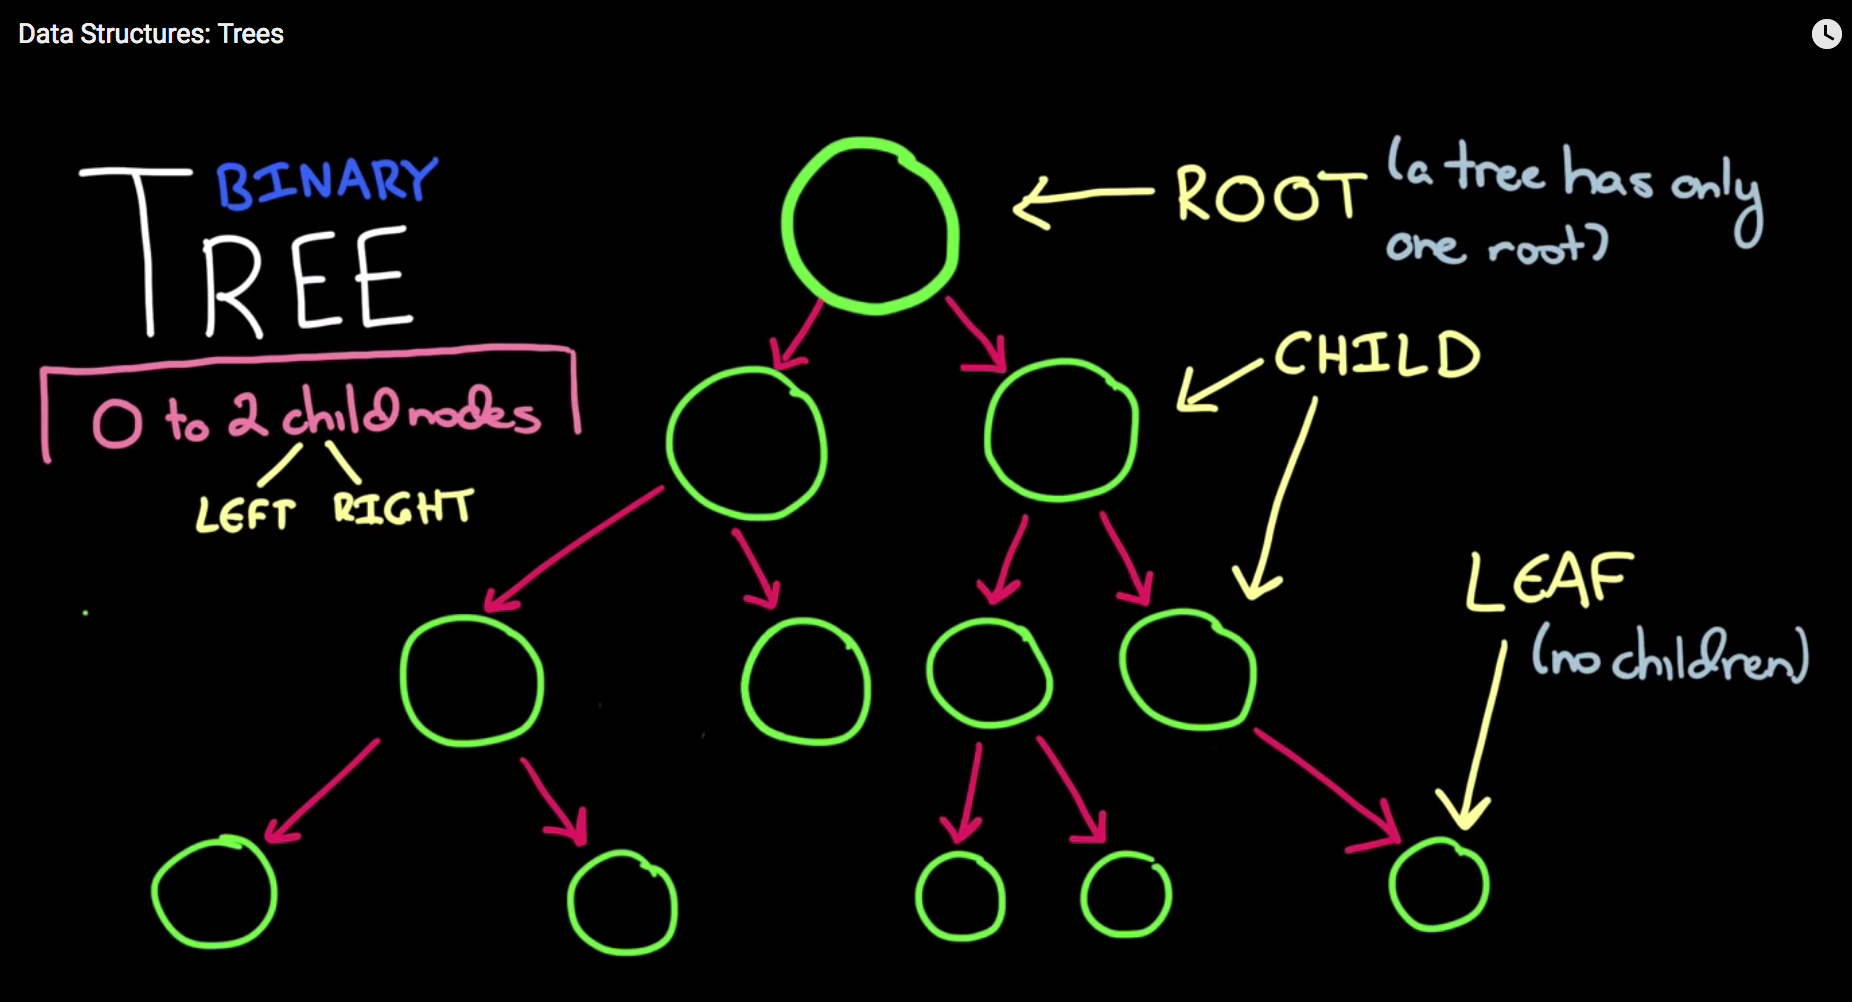 Data Structures: Trees
BINARY
TREE
0 to 2 child nodes
LEFT RIGHT
ROOT (a tree has only
one root)
CHILD
LEAF
(no children)